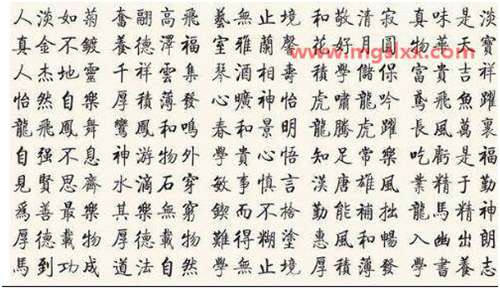 人淡如菊 奮翮高飛 藝無止境 和敬清寂 真味是淡
真金不鍍 養德澤福 室雅蘭馨 花好月圓 物華天寶
www.mgslxx.com
人杰地靈 千祥雲集 琴 相壽 積學儲 富貴吉祥
怡然自樂 厚積薄發 心曠神怡 虎嘯龍吟 鳶飛魚躍
龍飛鳳舞 鸞鳳和鳴 春和景明 龍騰虎躍 長風萬裏
自强不息 神游物外 學貴心悟 知足常樂 吃虧是福
見賢思齊 水滴石穿 敏事慎言 漢唐雄風 業精于勤
爲善最樂 其樂無窮 鍥而不捨 勤能補拙 龍馬精神
厚德載物 厚德載物 難得糊塗 惠風和暢 入幽出朗
馬到功成 道法自然 學無止境 厚積薄發 學書養志